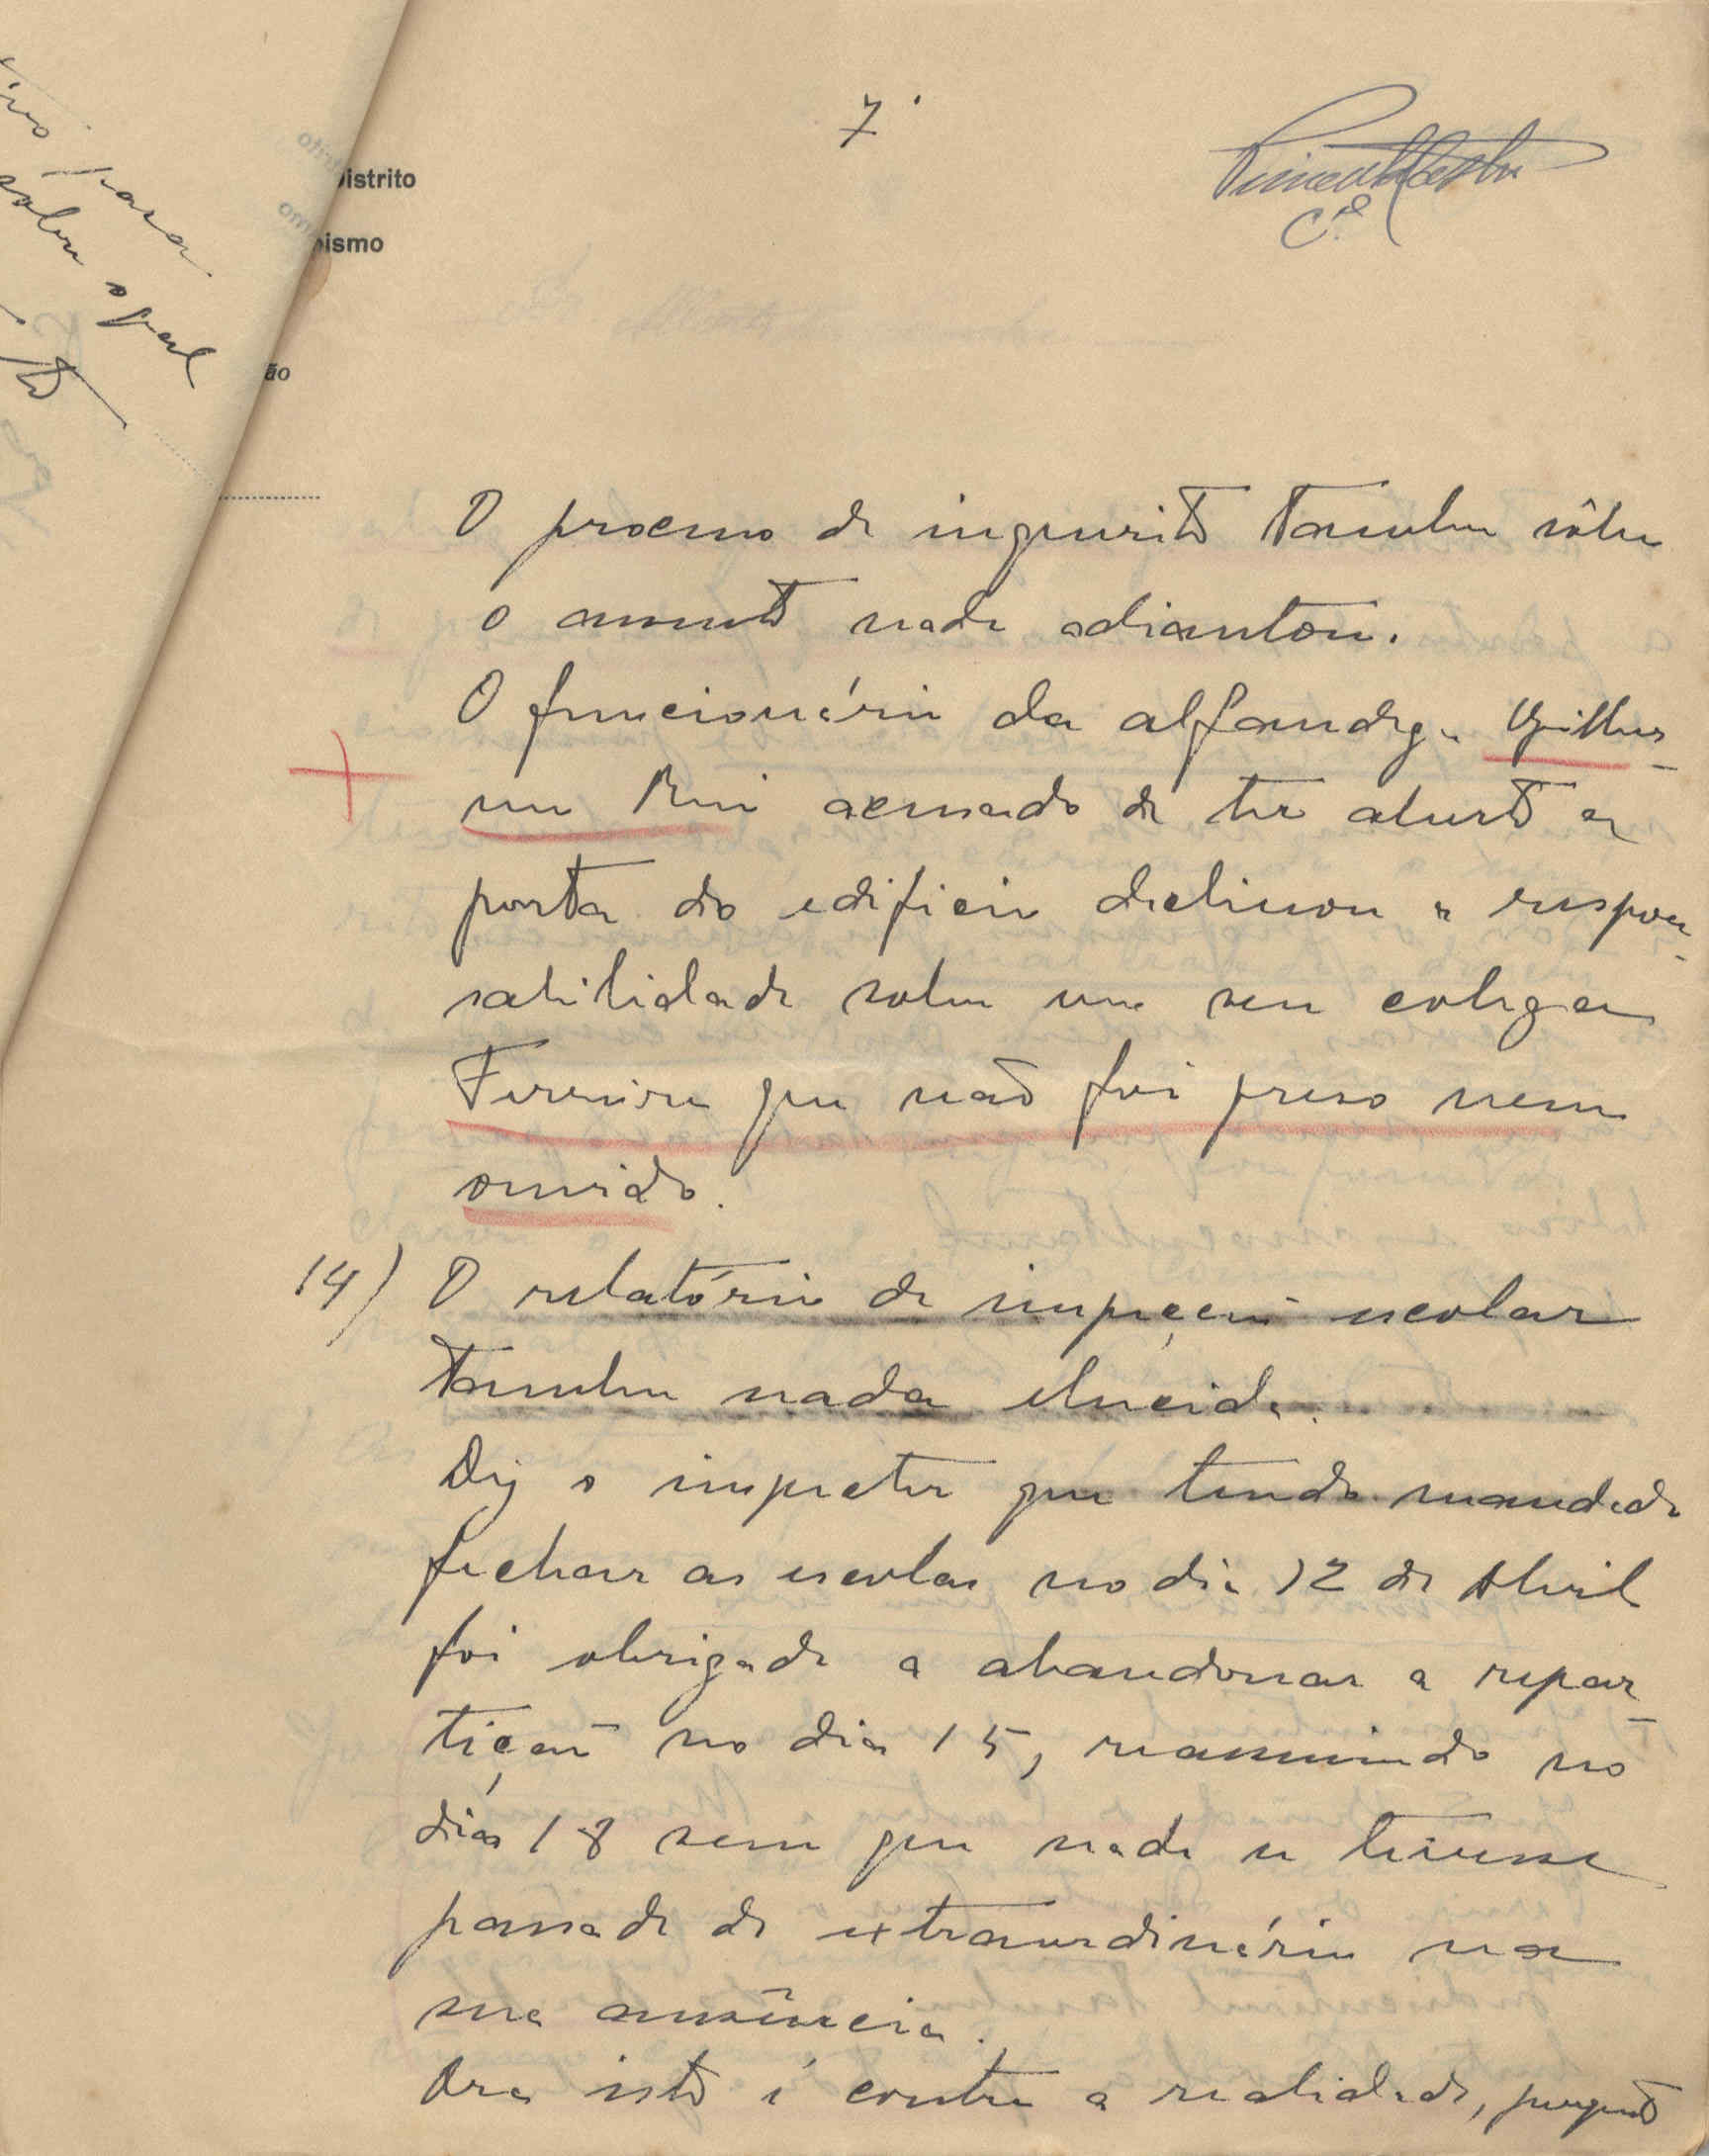 7
Distrito
ismo
ão
para
sobre o qual
O processo de inquerito tambem sôbre
o assunto nada adiantou.
O funcionário da alfandega Guilher-
me Rui acusado de ter aberto a
porta do edificio declinou a respon-
sabilidade sobre um seu colega
Ferreira que não foi preso nem
ouvido.
14) O relatório da inspeção escolar
tambem nada elucida.
Diz o inspector que tendo mandado
fechar as escolas no dia 12 de Abril
foi obrigado a abandonar a repar-
tição no dia 15, reassumindo no
dia 18 sem que nada se tivesse
passado de extraordinário na
sua ausência.
Ora isto é contra a realidade, porquanto